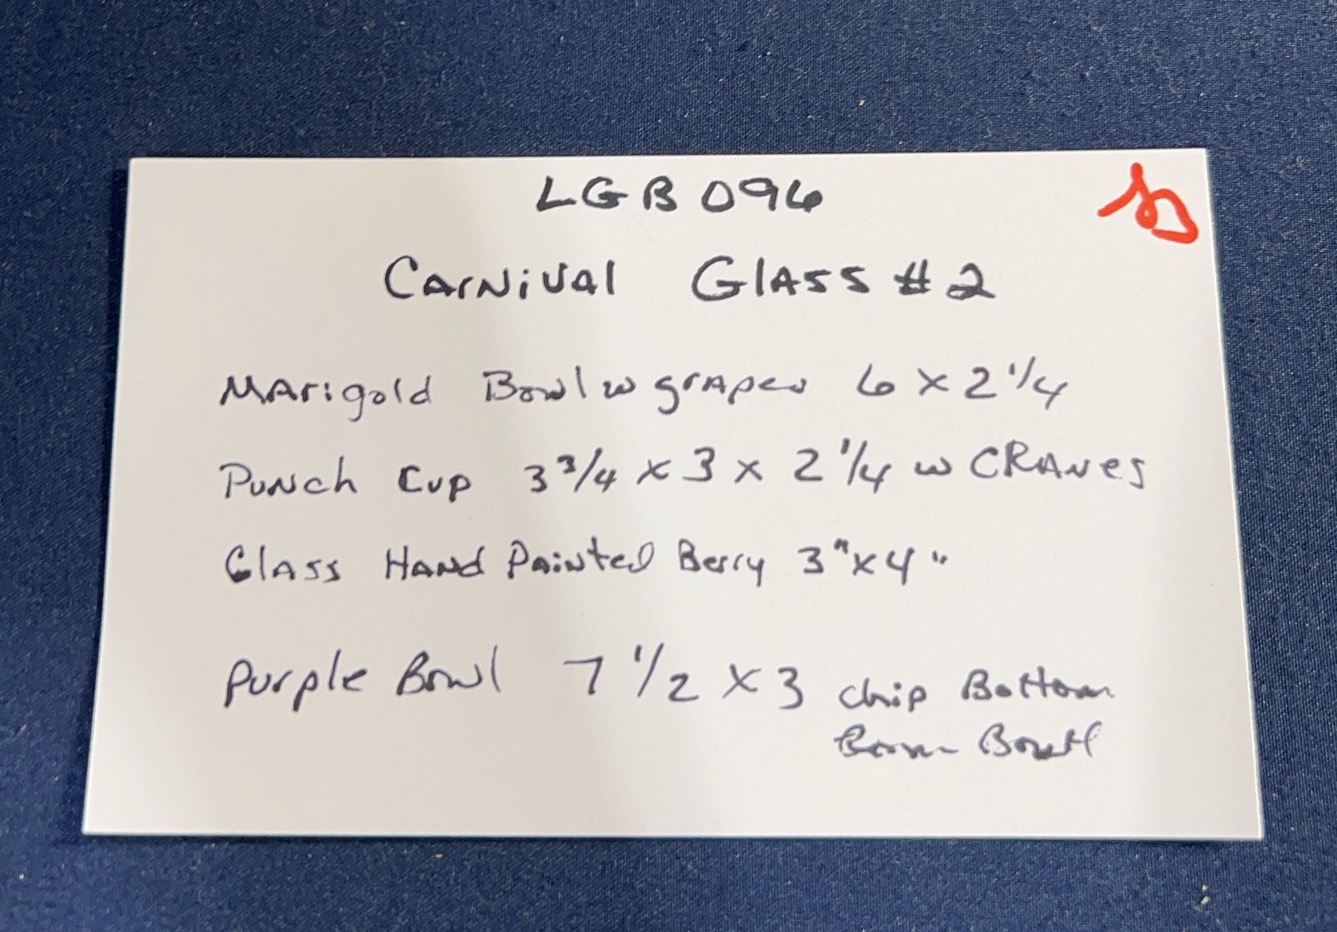 LGB 096
Carnival Glass #2
Marigold Bowl w grapes 6 x 2 1/4
Punch Cup 3 3/4 x 3 x 2 1/4 w CRANES
Glass Hand Painted Berry 3" x 4"
Purple Bowl 7 1/2 x 3 chip Bottom